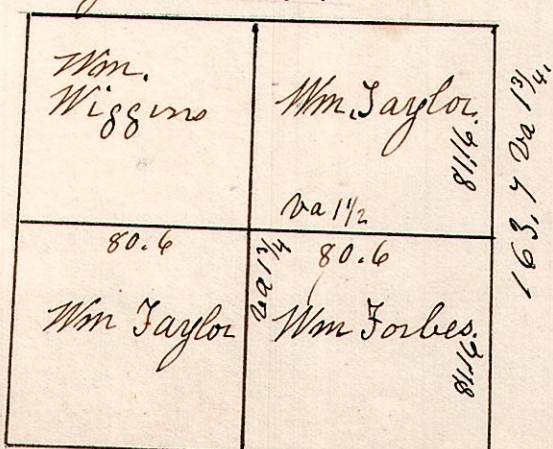 Wm.
Wiggins
Wm. Taylor
81.16.
163.7 va 1 3/4.
va 1 1/2
80.6
va 1 3/4
80.6
Wm Taylor
Wm Forbes.
81.16